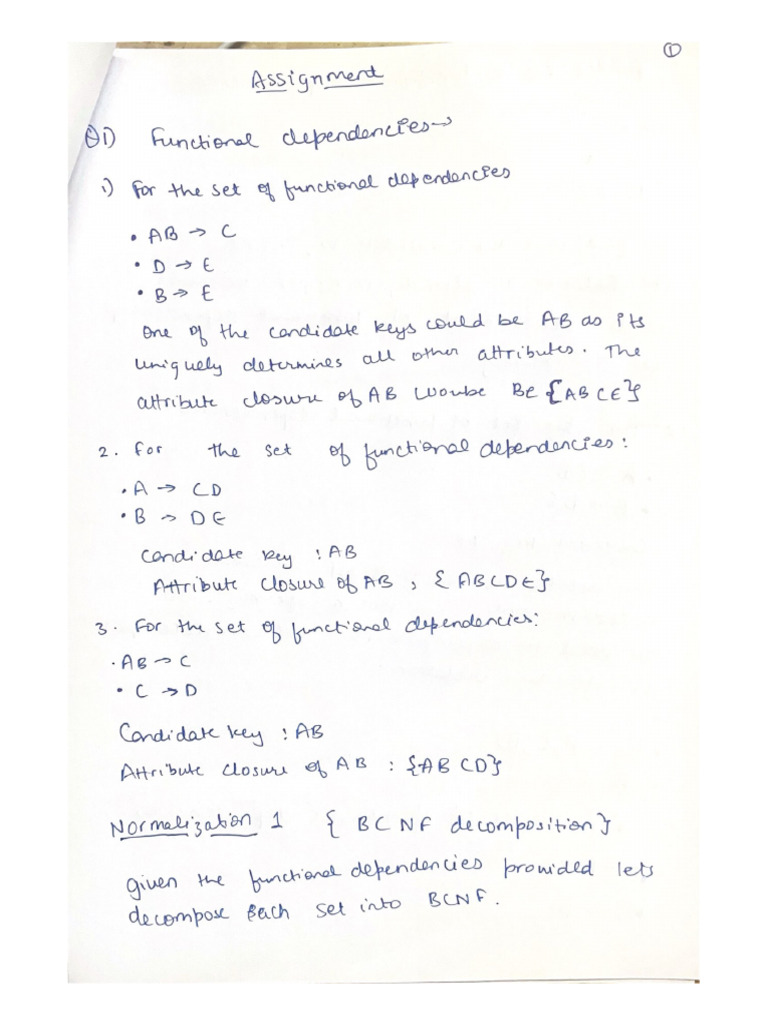 ①
Assignment
Q1) Functional dependencies→
1) For the set of functional dependencies
• AB → C
• D → E
• B → E
One of the candidate keys could be AB as its
uniquely determines all other attributes. The
attribute closure of AB Be {ABCE}
2. For the set of functional dependencies:
• A → CD
• B → DE
Candidate key : AB
Attribute closure of AB , {ABCDE}
3. For the set of functional dependencies:
• AB → C
• C → D
Candidate key : AB
Attribute closure of AB : {ABCD}
Normalization 1 { BCNF decomposition}
given the functional dependencies provided lets
decompose Each set into BCNF.